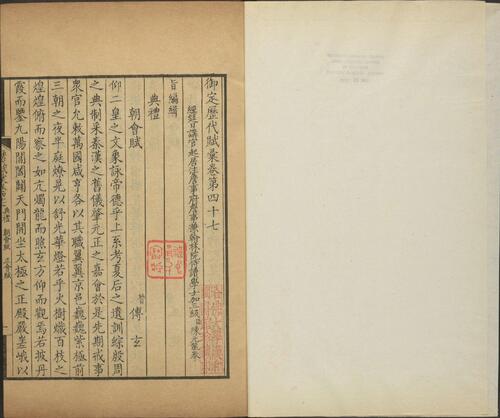 御定歷代賦彙卷第四十七
經筵日講官起居注詹事府詹事兼翰林院侍讀學士加三級臣陳元龍奉
旨編輯
典禮
朝會賦
晉傅玄
仰二皇之文象詠帝德乎上系考夏后之遺訓綜殷周
之典制采秦漢之舊儀肇元正之嘉會於是先期戒事
衆官允敕萬國咸亨各以其職翼翼京邑巍巍紫極前
三朝之夜半庭燎晃以舒光華燈若乎火樹熾百枝之
煌煌俯而察之如亢燭龍而照玄方仰而觀焉若披丹
霞而鑒九陽閶闔闢天門開坐太極之正殿嚴嵯峨以